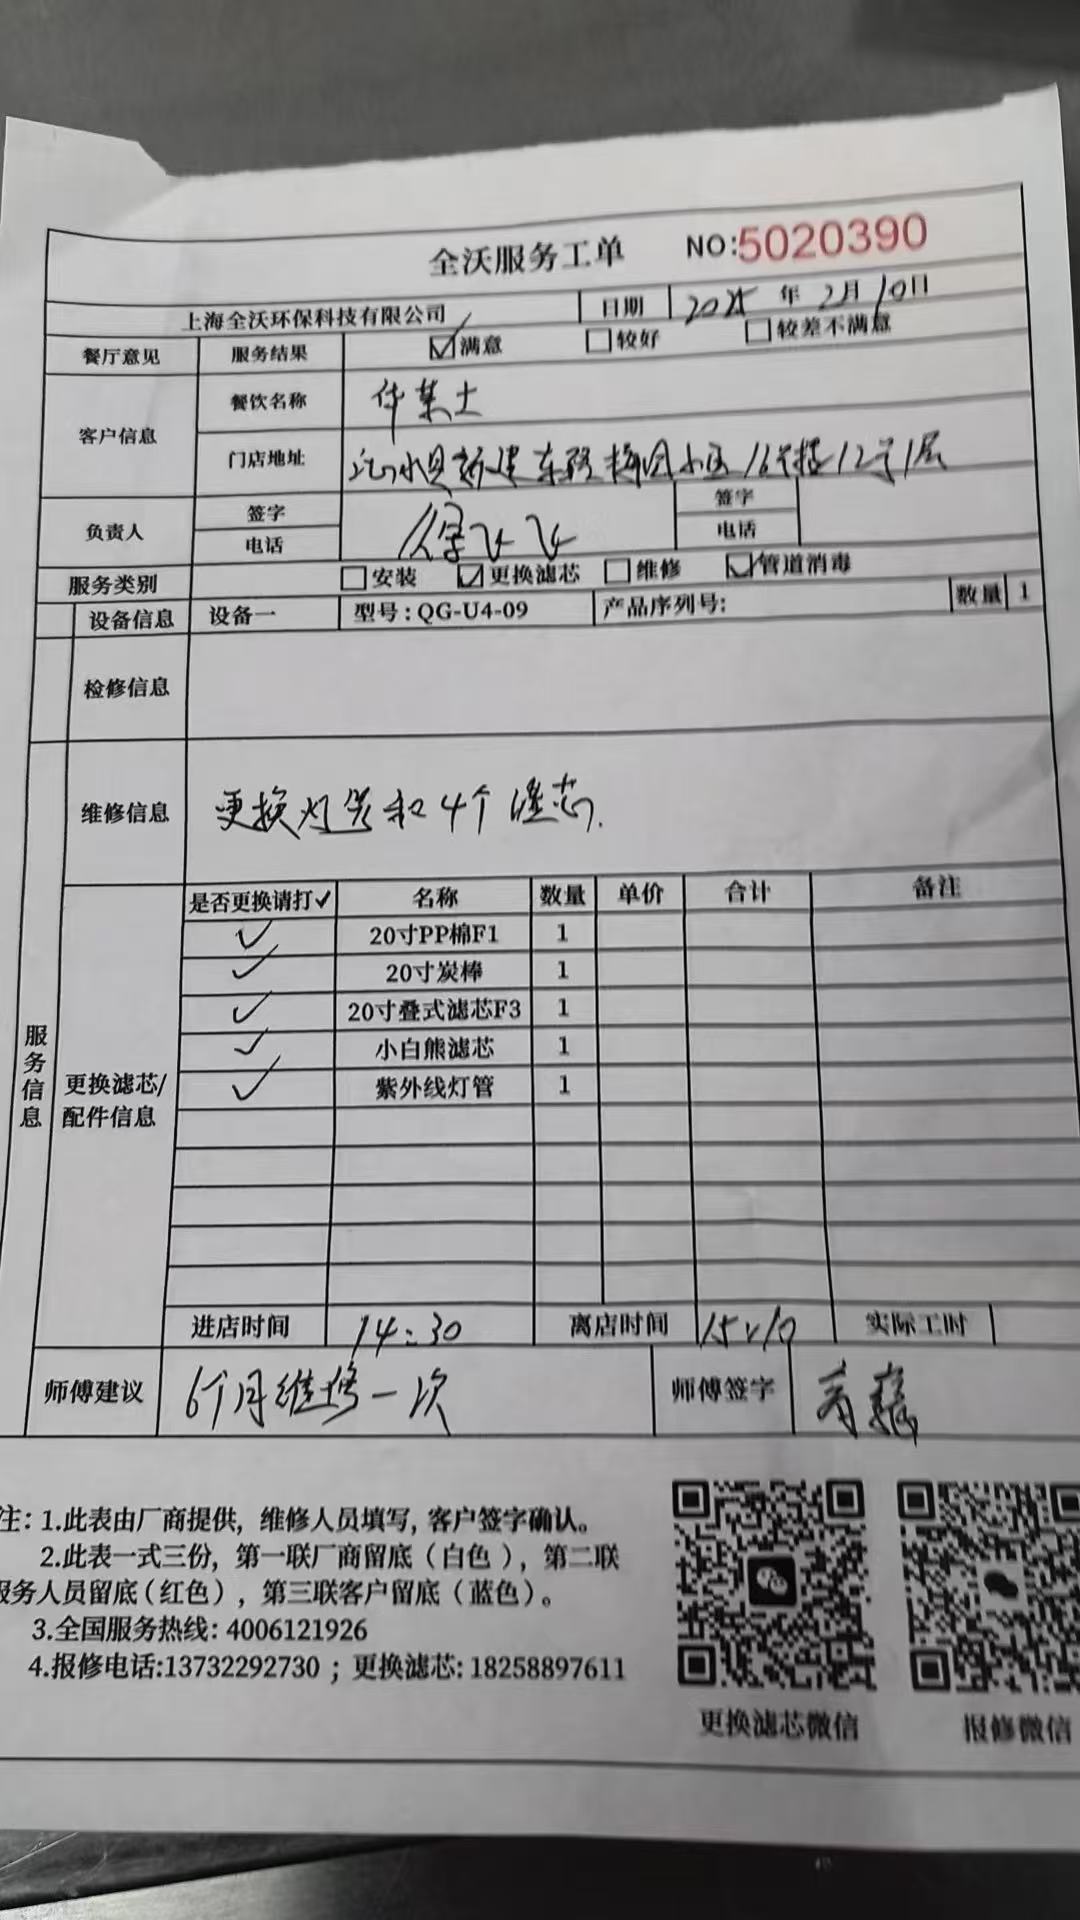 全沃服务工单 NO:5020390
上海全沃环保科技有限公司 日期 2025年2月10日
餐厅意见 服务结果 ☑满意 □较好 □较差不满意
客户信息 餐饮名称 华莱士
门店地址 沂水县新建东路梅园小区16号楼12号1层
负责人 签字 徐飞飞 签字
电话 电话
服务类别 □安装 ☑更换滤芯 □维修 ☑管道消毒
设备信息 设备一 型号:QG-U4-09 产品序列号: 数量 1
检修信息
维修信息 更换灯管和4个滤芯.
服务信息
更换滤芯/配件信息
是否更换请打✓ 名称 数量 单价 合计 备注
✓ 20寸PP棉F1 1
✓ 20寸炭棒 1
✓ 20寸叠式滤芯F3 1
✓ 小白熊滤芯 1
✓ 紫外线灯管 1
进店时间 14:30 离店时间 15:10 实际工时
师傅建议 6个月维修一次 师傅签字
注: 1.此表由厂商提供, 维修人员填写, 客户签字确认。
2.此表一式三份, 第一联厂商留底(白色), 第二联
服务人员留底(红色), 第三联客户留底(蓝色)。
3.全国服务热线: 4006121926
4.报修电话:13732292730 ; 更换滤芯: 18258897611
更换滤芯微信 报修微信